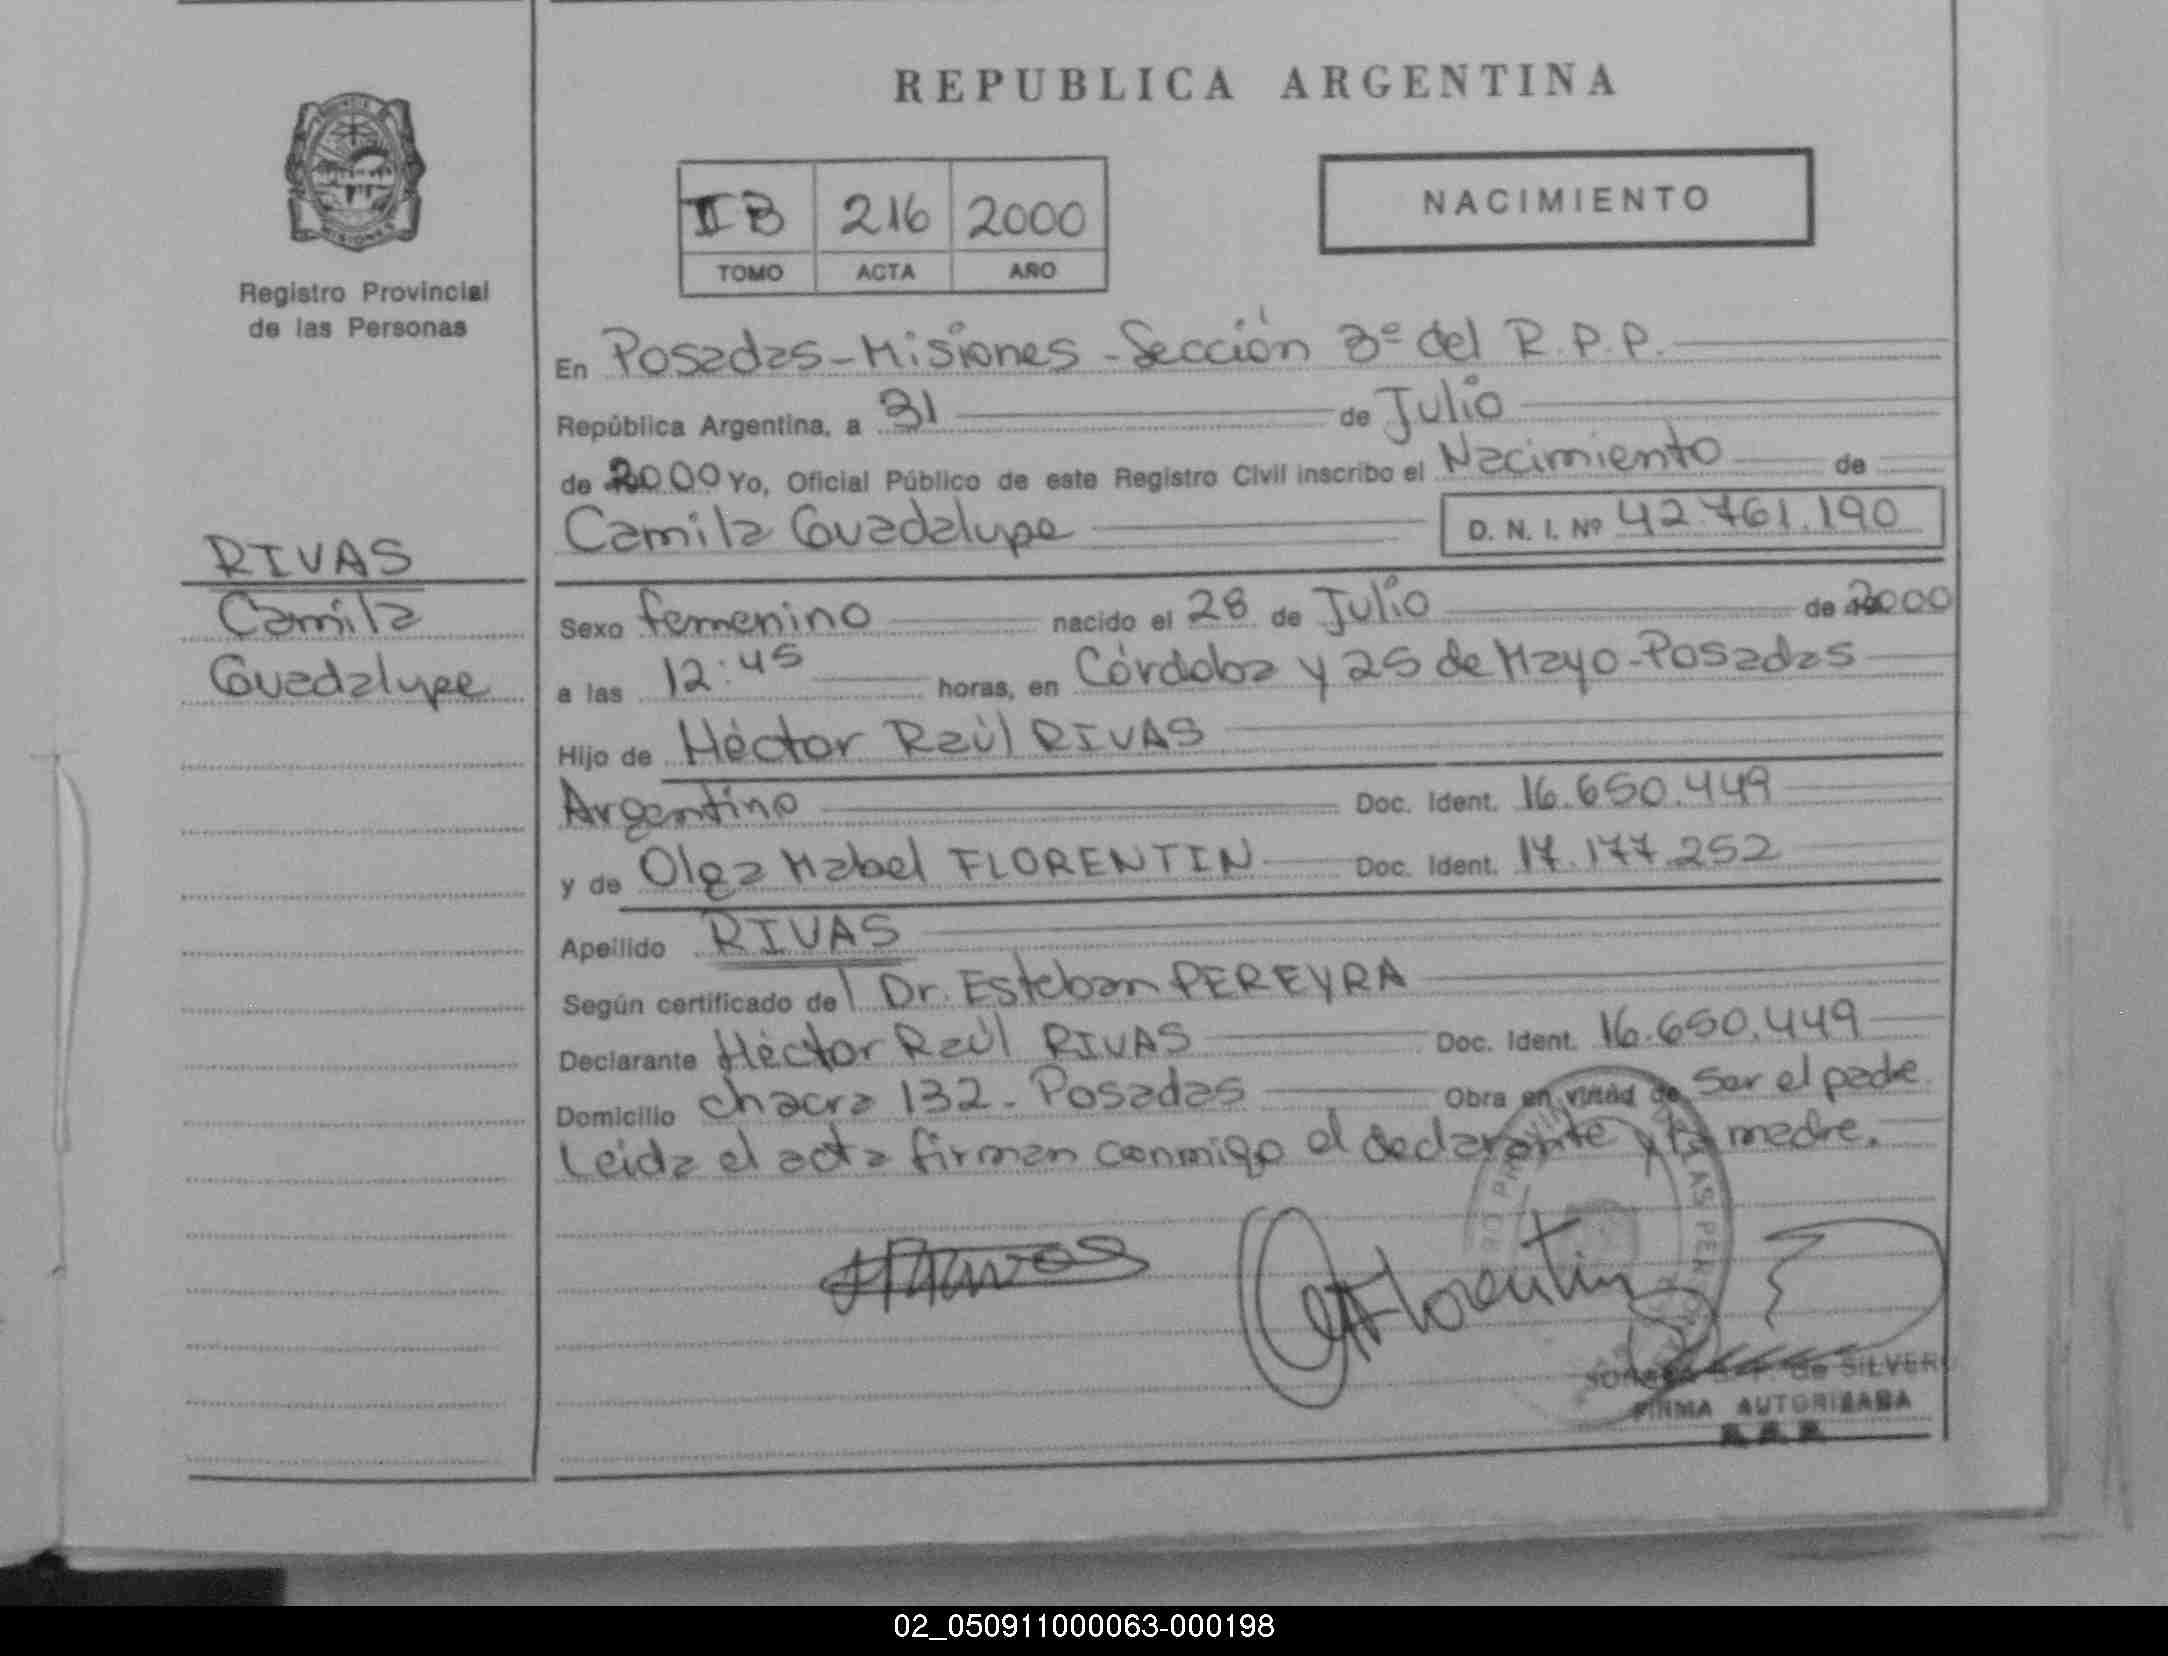 REPUBLICA ARGENTINA
MISIONES
Registro Provincial
de las Personas
II B 216 2000
TOMO ACTA AÑO
NACIMIENTO
En Posadas - Misiones - Sección 3º del R.P.P.
República Argentina, a 31 de Julio
de 2000 Yo, Oficial Público de este Registro Civil inscribo el Nacimiento de
Camila Guadalupe D. N. I. Nº 42.761.190
RIVAS
Camila
Guadalupe
Sexo femenino nacido el 28 de Julio de 2000
a las 12:45 horas, en Córdoba y 25 de Mayo - Posadas
Hijo de Héctor Raúl RIVAS
Argentino Doc. Ident. 16.650.449
y de Olga Mabel FLORENTIN Doc. Ident. 17.177.252
Apellido RIVAS
Según certificado del Dr. Esteban PEREYRA
Declarante Héctor Raúl RIVAS Doc. Ident. 16.650.449
Domicilio chacra 132 - Posadas Obra en virtud de Ser el padre
Leida el acta firman conmigo el declarante y la madre.
Florentin
de SILVER
FIRMA AUTORIZADA
02_050911000063-000198